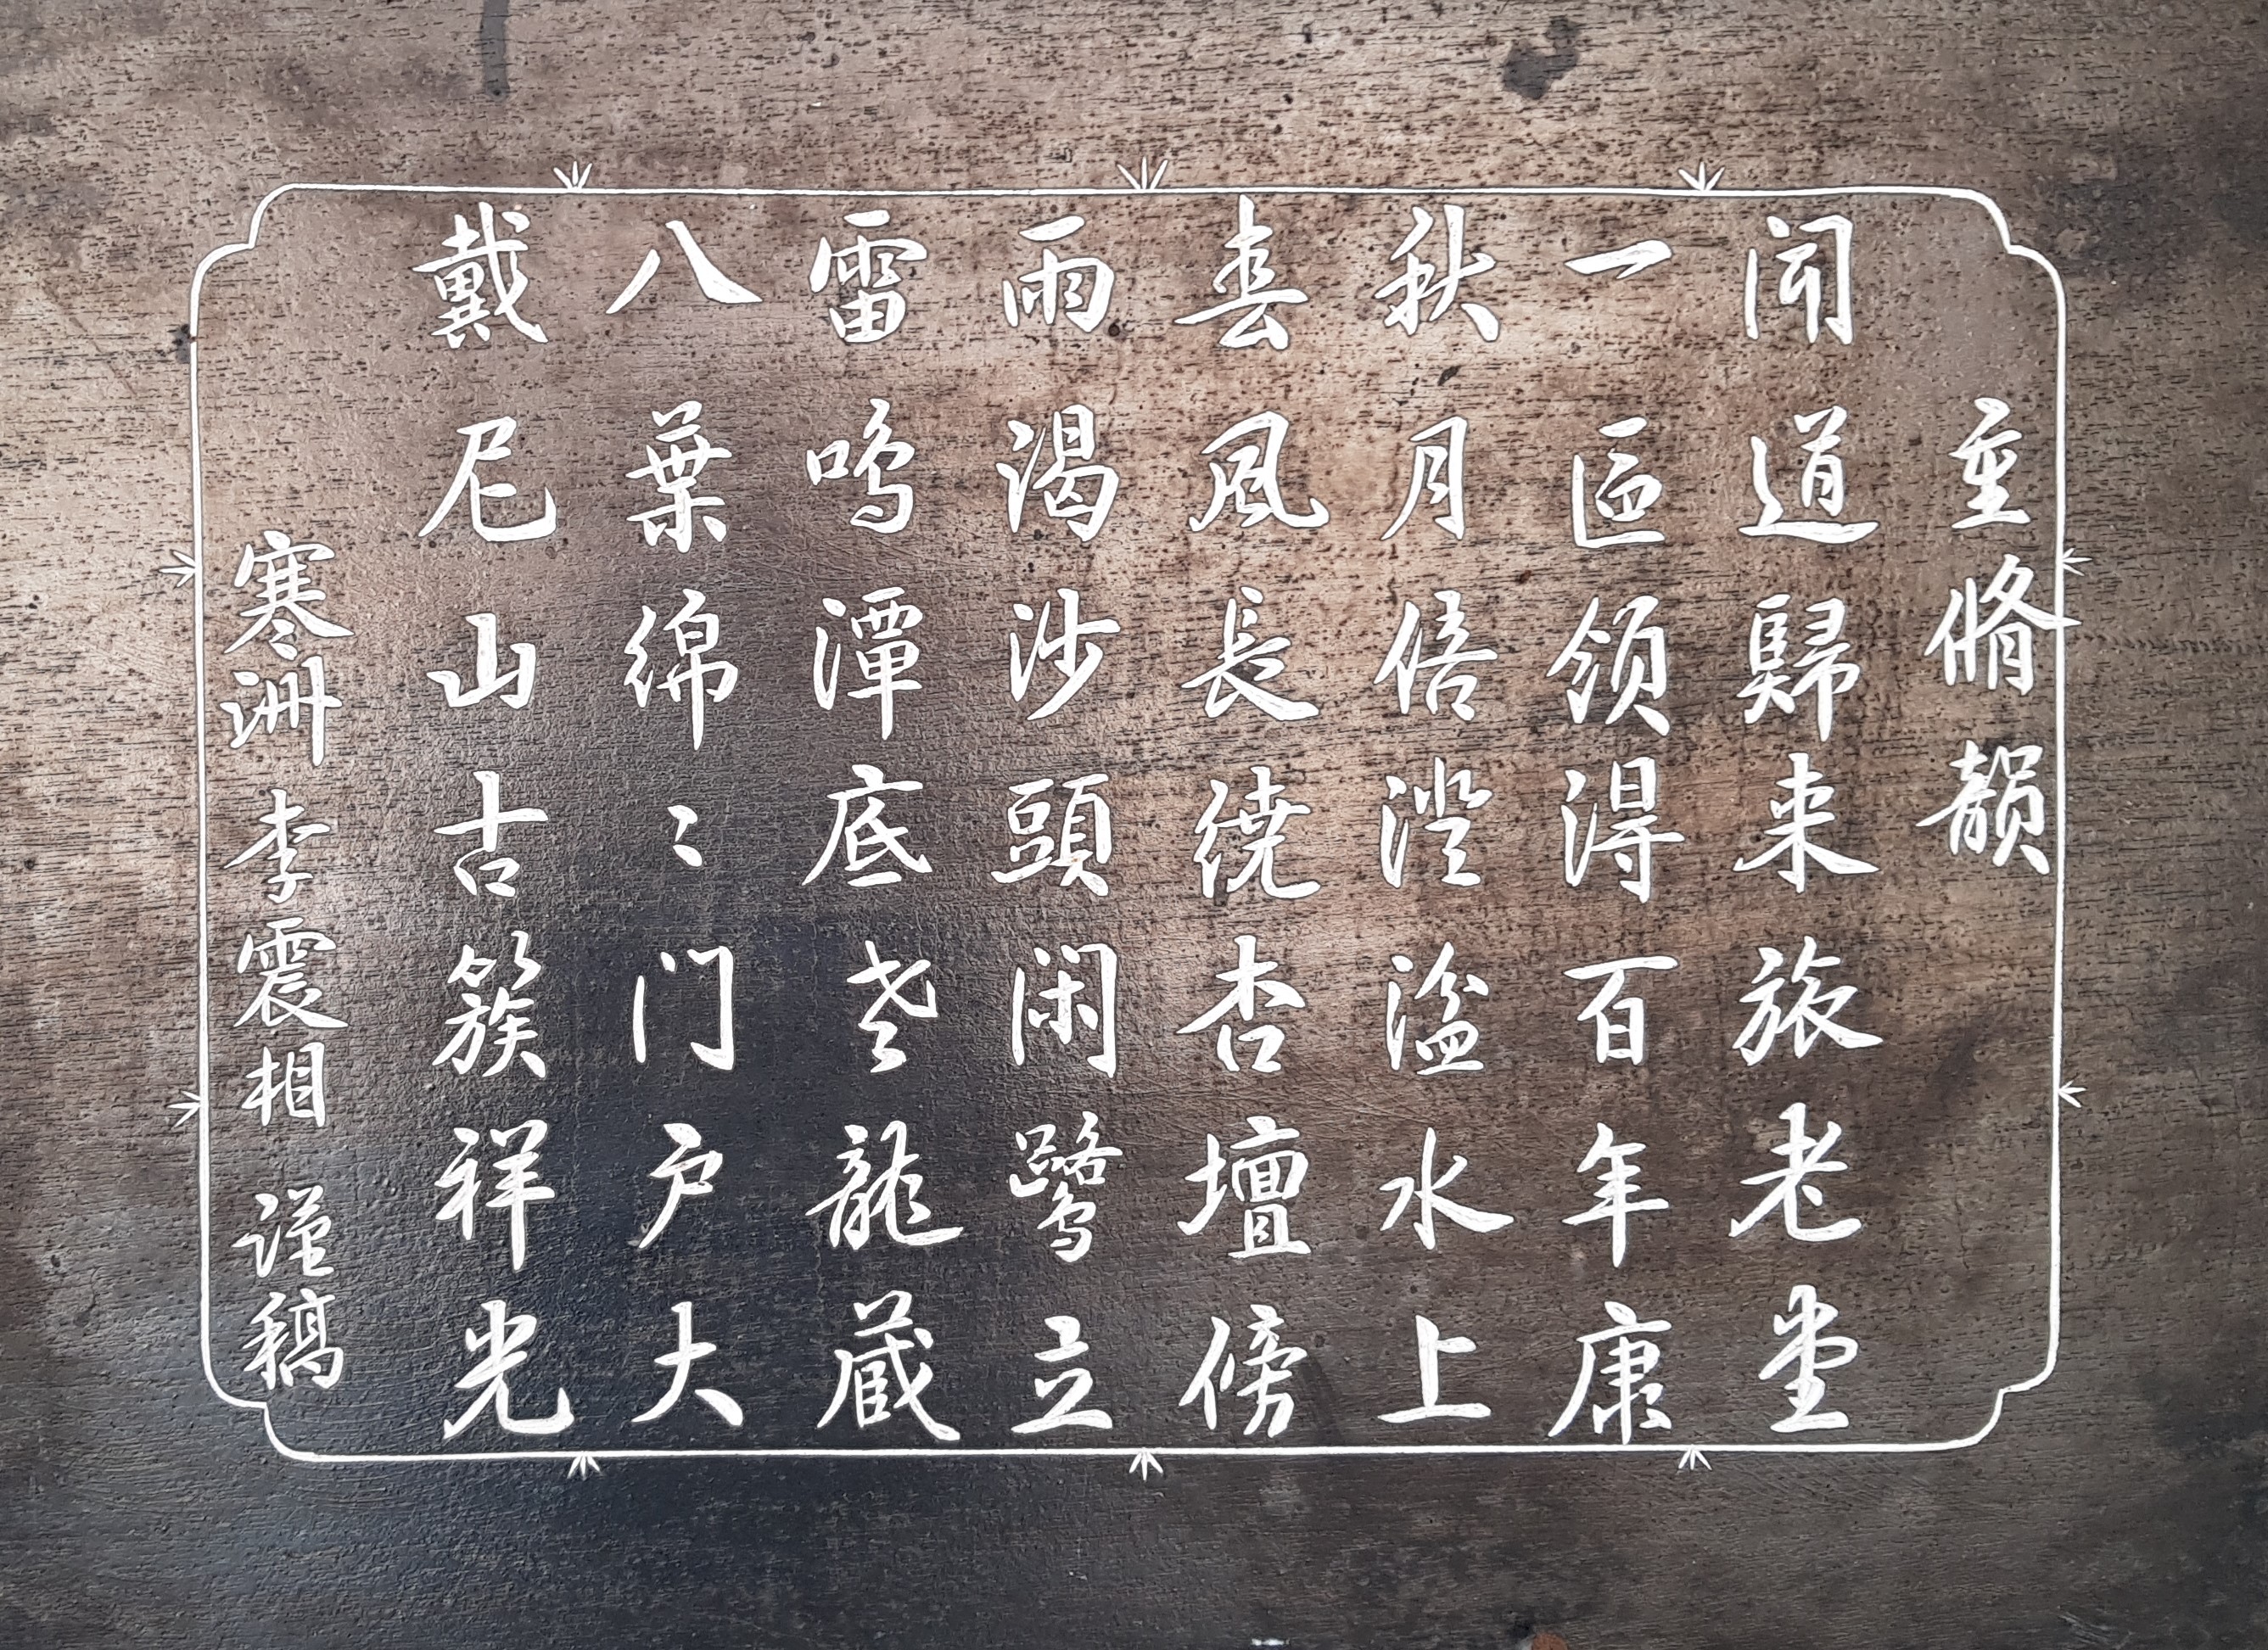 重脩韻
聞道歸来旅老堂
一區領得百年康
秋月倍澄湓水上
春風長繞杏壇傍
雨渴沙頭閑鷺立
雷鳴潭底老龍蔵
八葉綿〻門户大
戴尼山古簇祥光
寒洲 李震相 謹稿